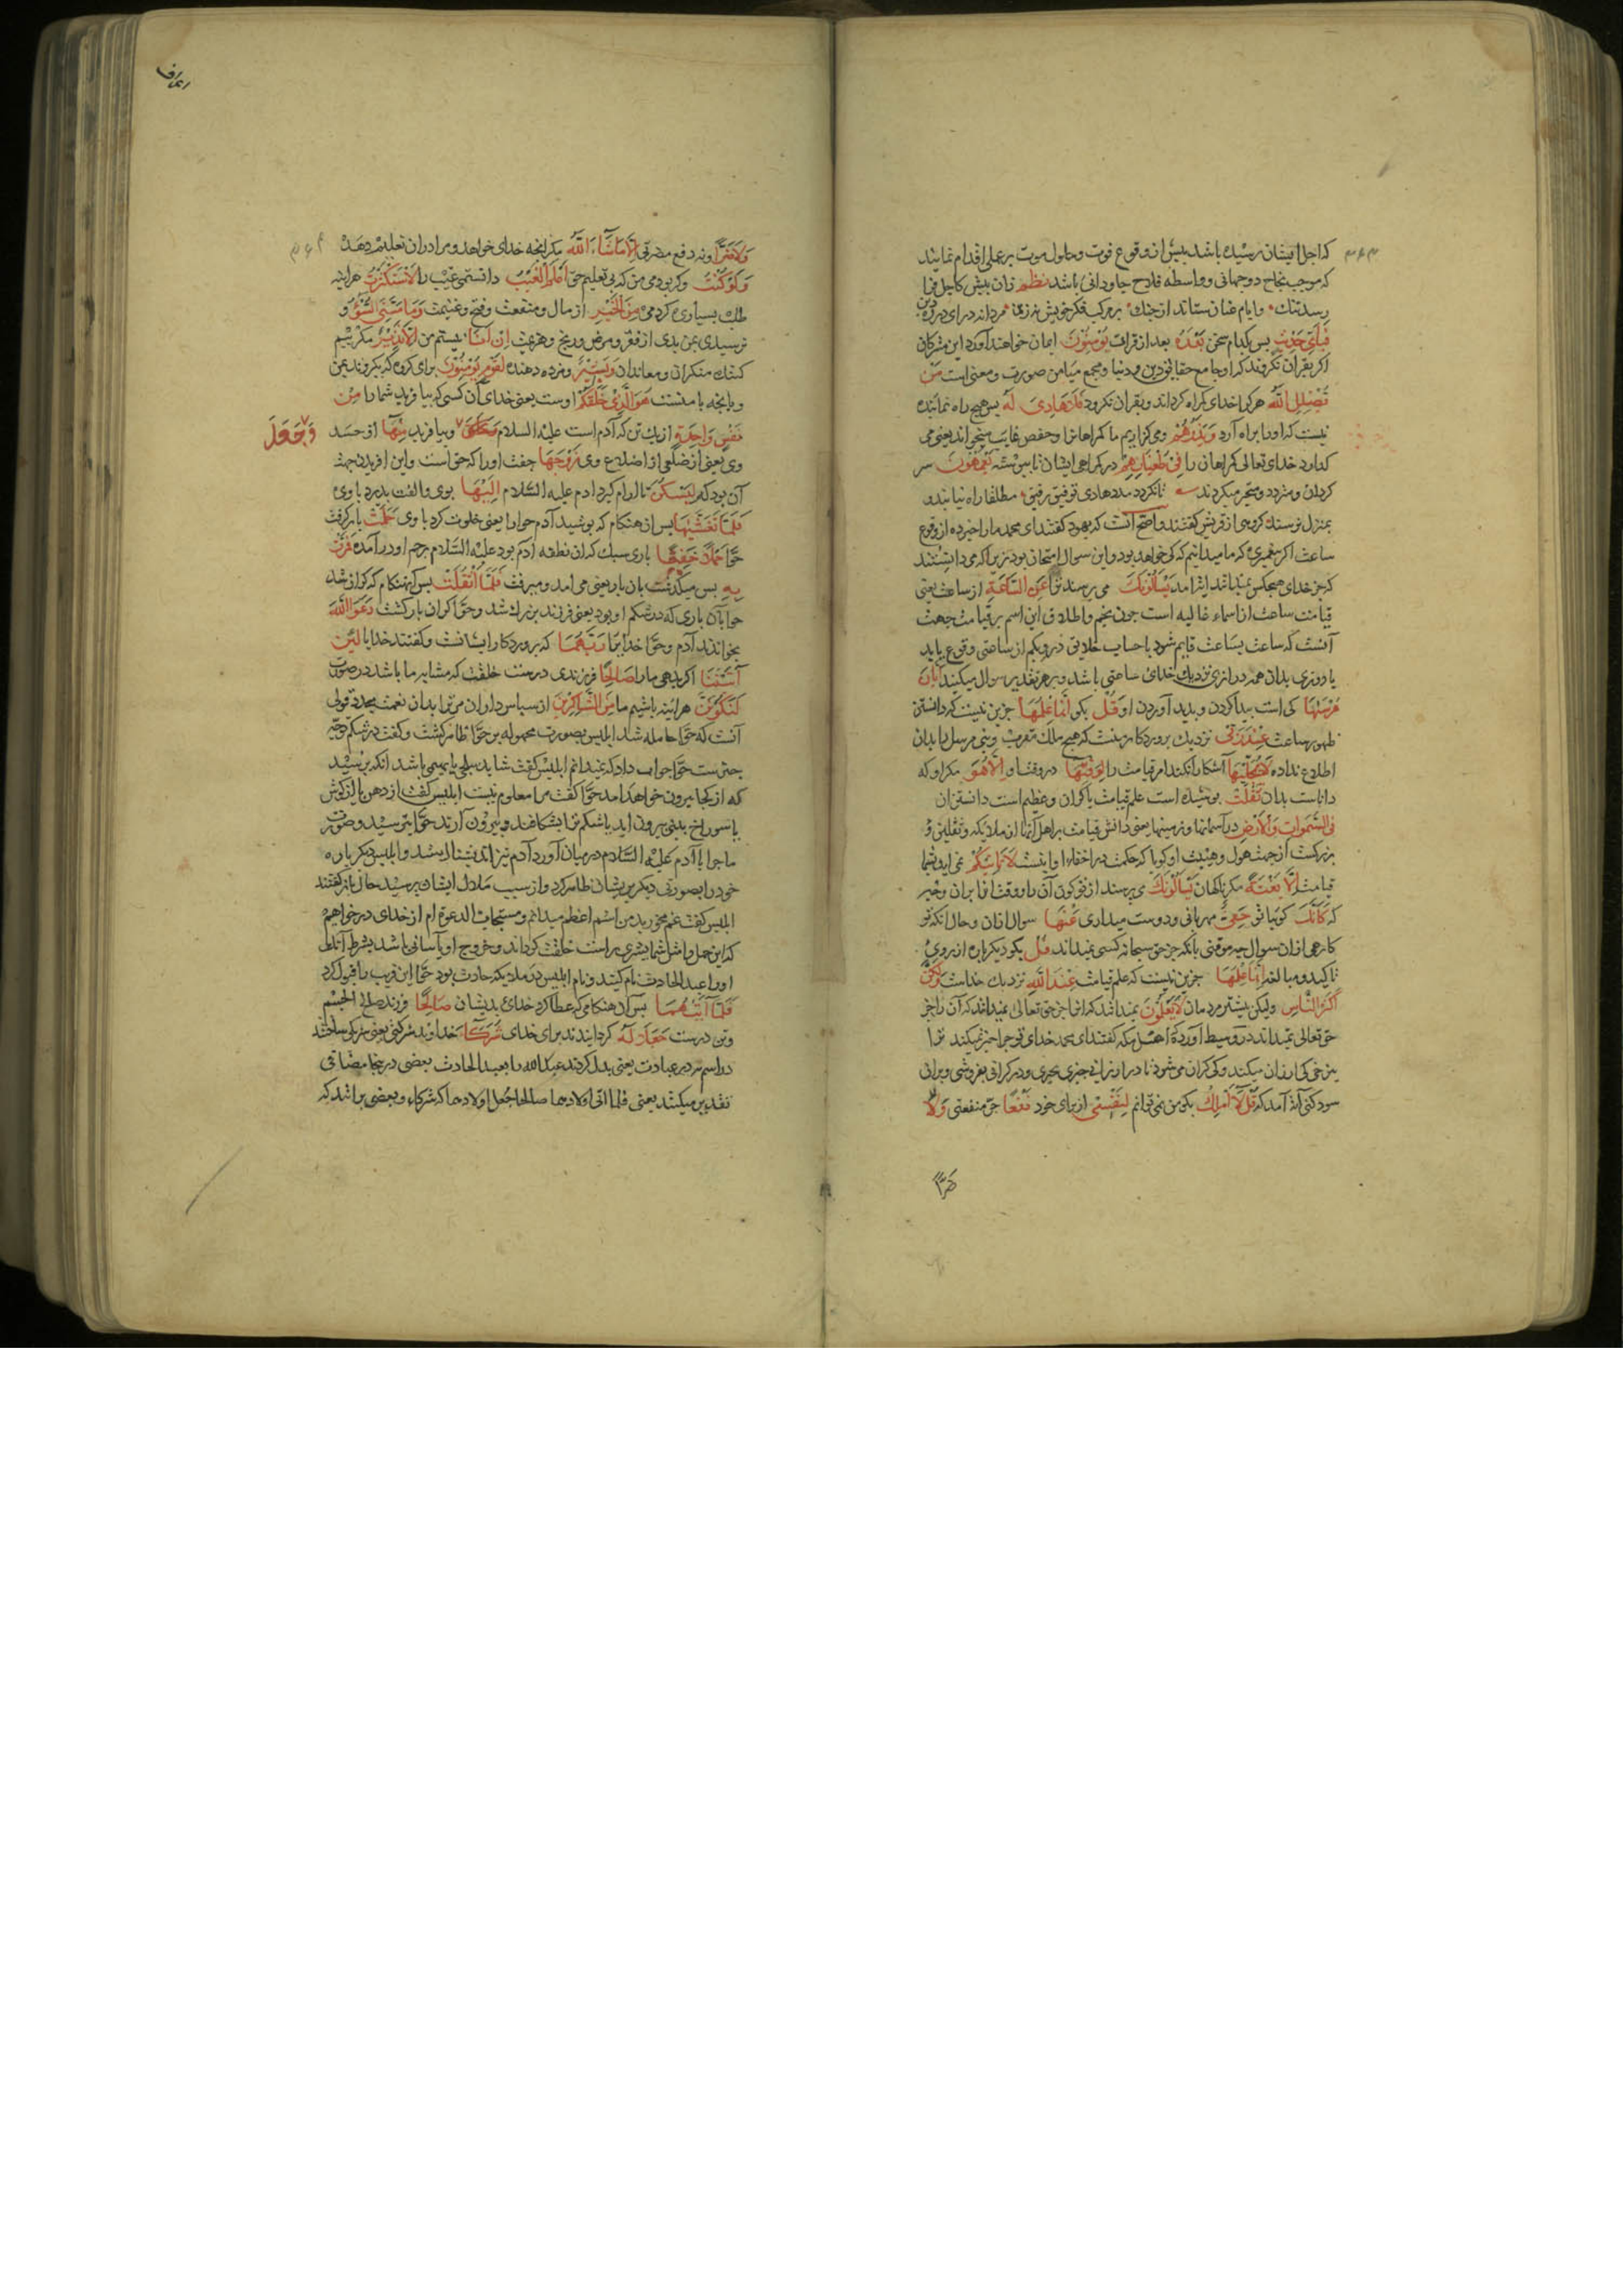 که اجل ایشان رسیده باشد پیش از وقوع فوت و حلول موت بر عملی اقدام نمایند
که موجب نجاح دو جهانی و واسطه فلاح جاودانی باشد نظم زان پیش کاجل فرا
رسد تنک وایام عنان ستاند از جنک بر مرکب فکر خویش نه زین مردانه درای در ره دین
فبای حدیث پس بکدام سخن بعده بعد از قرآن یؤمنون ایمان خواهند آورد این مشرکان
اکر بقرآن نکروند که او جامع حقایق دین و دنیا و مجمع میامن صورت و معنی است من
یضلل الله هرکرا خدای کمراه کرداند و بقران نکرود فلا هادی له پس هیچ راه نماینده
نیست که او را براه آرد ویذرهم ومی کزاریم ما کمراهانرا و حفص بغایب میخواند یعنی می
کذارد خدای تعالی کمراهان را فی طغیانهم در کمراهی ایشان یعمهون سر
کردان و متردد و متحیر میکردند تا نکردد مدد هادی توفیق رفیق مطلقا راه نیابند و
بمنزل نرسند کروهی از قریش کفتند واصح آنست که یهود کفتند ای محمد ما را خبر ده از وقوع
ساعت اکر پیغمبری که ما میدانیم که کی خواهد بود و این سوال امتحان بود زیرا که می دانستند
که جز خدای هیچکس نمیداند این آمد یسألونک می پرسند ترا عن الساعة از ساعت یعنی
قیامت ساعت از اسماء غالبه است چون نجم و اطلاق این اسم بر قیامت جهت
آنست که ساعت بساعت قایم شود یا حساب خلایق درو بکم از ساعتی وقوع یابد
یا روزی بدان همه درازی نزدیک خدای ساعتی باشد و بر هر تقدیر سوال میکنند ایان
مرسیها کی است پیدا کردن و پدید آوردن او قل بکو انما علمها جز این نیست که دانستن
ظهور ساعت عند ربی نزدیک پروردکار منست که هیچ ملک مقرب و نبی مرسل را بدان
اطلاع نداده لا یجلیها آشکارا نکند امر قیامت را لوقتها در وقت او الا هو مکر او که
داناست بدان ثقلت پوشیده است علم قیامت یا کران و عظیم است دانستن آن
فی السموات والارض در آسمانها و زمینها یعنی دانش قیامت بر اهل آنها از ملائکه و ثقلین و
بزرکست از جهت هول و هیبت او کویا که حکمت در اخفاء او اینست لا تأتیکم نمی آید بشما
قیامت الا بغتة مکر ناکهان یسألونک می پرسند از تو کون آن را و وقت آن و خبر
که کانک کویا تو حفی مهربانی و دوست میداری عنها سوال از آن و حال آنکه تو
کارهی از آن سوال چه موقنی بآنکه جز حق سبحانه کسی نمیداند قل بکو دیکر باره از روی
تاکید و مبالغه انما علمها جز این نیست که علم قیامت عند الله نزدیک خداست ولکن
اکثر الناس ولیکن بیشتر مردمان لا یعلمون نمیدانند که آنرا جز حق تعالی نمیداند که آن را جز
حق تعالی نمیداند در وسیط آورده که اهل مکه کفتند ای محمد خدای تو چرا خبر نمیکند ترا
سود کنی آیة آمد که قل لا املک بکو من نمی توانم لنفسی از برای خود نفعا جر منفعتی ولا
ضرا
اعراف
ولا ضرا و نه دفع مضرتی الا ماشاء الله مکر آنچه خدای خواهد و مرا در آن تعلیم دهد
ولو کنت و کر بودمی من که بی تعلیم حق اعلم الغیب دانستمی غیب را لاستکثرت هر آینه
طلب بسیاری کردمی من الخیر از مال و منفعت و فتح و غنیمت وما مسنی السوء و
نرسیدی بمن بدی از فقر و مرض و رنج و هزیمت ان انا نیستم من الا نذیر مکر بیم
کننده منکران و معاندان وبشیر و مژده دهنده لقوم یؤمنون برای کروهی که بکروند بمن
و بآنچه با منست هو الذی خلقکم اوست یعنی خدای آن کسی که بیافرید شما را من
نفس واحدة از یک تن که آدم است علیه السلام و بیافرید منها از جسد
وجعل
وی یعنی از ضلعی از اضلاع وی زوجها جفت او را که حواست و این آفریدن جهت
آن بود که لیسکن تا آرام کیرد آدم علیه السلام الیها بوی و الفت پذیرد با وی
فلما تغشیها پس آن هنکام که بپوشید آدم حوا را یعنی خلوت کرد با وی حملت بار کرفت
حوا حملا خفیفا باری سبک که آن نطفه آدم بود علیه السلام برحم او در آمده فمرت
به پس میکذشت بآن بار یعنی می آمد و میرفت فلما اثقلت پس آن هنکام که کران شد
حوا بآن باری که در شکم او بود یعنی فرزند بزرک شد و حوا کران بار کشت دعوا الله
بخواندند آدم و حوا خدای را ربهما که پروردکار ایشانست و کفتند خدایا لئن
آتیتنا اکر بدهی ما را صالحا فرزندی درست خلقت که مشابه ما باشد در صورت
لنکونن هر آئینه باشیم ما من الشاکرین از سپاس داران مر ترا بدان نعمت مجدد قولی
آنست که حوا حامله شد ابلیس بصورت مجهوله بر حوا ظاهر کشت و کفت در شکم تو چه
چیز است حوا جواب داد که نمیدانم ابلیس کفت شاید سبعی یا بهیمی باشد آنکه پرسید
که از کجا بیرون خواهد آمد حوا کفت مرا معلوم نیست ابلیس کفت از دهن یا از کوش
یا سوراخ بینی بیرون آید یا شکم ترا بشکافند و بیرون آرند حوا بترسید و صورت
ماجرا با آدم علیه السلام در میان آورد آدم نیز اندیشناک شد و ابلیس دیکر باره
خود را بصورتی دیکر بریشان ظاهر کرد و از سبب ملال ایشان پرسید حال باز کفتند
ابلیس کفت غم مخورید من اسم اعظم میدانم و مستجاب الدعوة ام از خدای درخواهم
که این حمل را مثل شما بشری راست خلقت کرداند و خروج او بآسانی باشد بشرط آنکه
او را عبد الحارث نام کنید و نام ابلیس در ملائکه حارث بود حوا این فریب را قبول کرد
فلما آتیهما پس آن هنکامی که عطا کرد خدای بدیشان صالحا فرزند صالح الجسم
و تن درست جعلا له کردانیدند برای خدای شرکاء خداوند شرکتی یعنی شریک ساختند
در اسم نه در عبادت یعنی بدل کردند عبدالله را بعبد الحارث بعضی در اینجا مضافی
تقدیر میکنند یعنی فلما آتی اولادهما صالحا جعل اولادهما له شرکاء و بعضی برآنند که